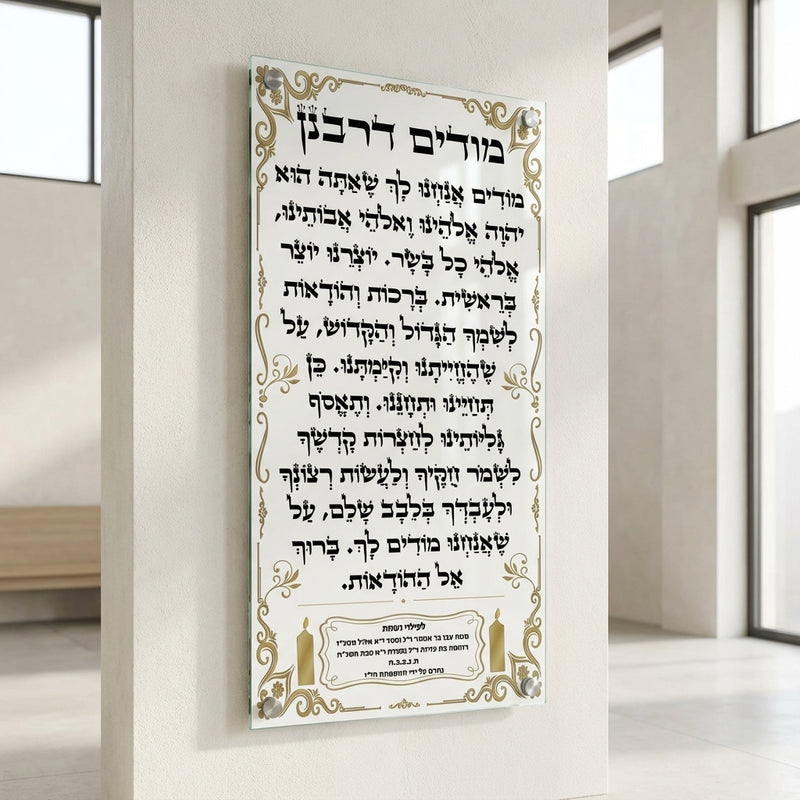 מודים דרבנן
מוֹדִים אֲנַחְנוּ לָךְ שֶׁאַתָּה הוּא
יהוה אֱלֹהֵינוּ וֵאלֹהֵי אֲבוֹתֵינוּ,
אֱלֹהֵי כָל בָּשָׂר. יוֹצְרֵנוּ יוֹצֵר
בְּרֵאשִׁית. בְּרָכוֹת וְהוֹדָאוֹת
לְשִׁמְךָ הַגָּדוֹל וְהַקָּדוֹשׁ, עַל
שֶׁהֶחֱיִיתָנוּ וְקִיַּמְתָּנוּ. כֵּן
תְּחַיֵּינוּ וּתְחָנֵּנוּ. וְתֶאֱסוֹף
גָּלִיּוֹתֵינוּ לְחַצְרוֹת קָדְשֶׁךָ
לִשְׁמֹר חֻקֶּיךָ וְלַעֲשׂוֹת רְצוֹנְךָ
וּלְעָבְדְּךָ בְּלֵבָב שָׁלֵם, עַל
שֶׁאֲנַחְנוּ מוֹדִים לָךְ. בָּרוּךְ
אֵל הַהוֹדָאוֹת.
לעילוי נשמת
ת.נ.צ.ב.ה
נתרם על ידי המשפחה